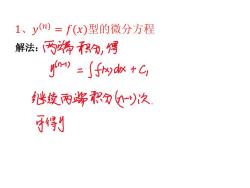 1、y⁽ⁿ⁾ = f(x)型的微分方程
解法：两端积分，得
y⁽ⁿ⁻¹⁾ = ∫f(x)dx + C₁
继续两端积分(n-1)次
可得